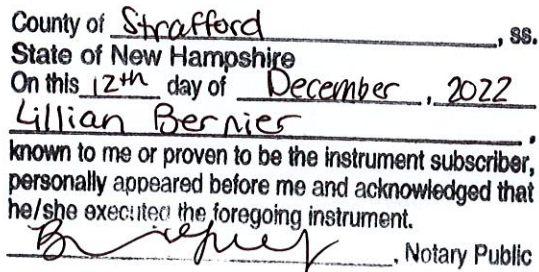 County of Strafford, ss.
State of New Hampshire
On this 12th day of December, 2022
Lillian Bernier,
known to me or proven to be the instrument subscriber,
personally appeared before me and acknowledged that
he/she executed the foregoing instrument.
, Notary Public